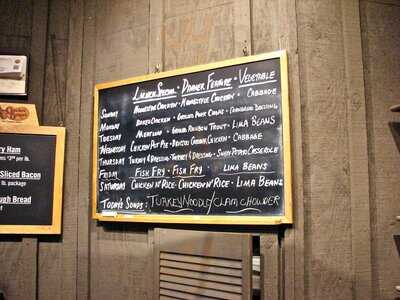 Lunch Special · Dinner Feature · Vegetable
Sunday Homestyle Chicken · Homestyle Chicken · Cabbage
Monday Baked Chicken · Grilled Pork Chops · Dressing
Tuesday Meatloaf · Grilled Rainbow Trout · Lima Beans
Wednesday Chicken Pot Pie · Broccoli Cheddar Chicken · Cabbage
Thursday Turkey & Dressing · Turkey & Dressing · Sweet Potato Casserole
Friday Fish Fry · Fish Fry · Lima Beans
Saturday Chicken N' Rice · Chicken N' Rice · Lima Beans
Today's Soups: Turkey Noodle/Clam Chowder
ry Ham
per lb.
Sliced Bacon
lb. package
ugh Bread